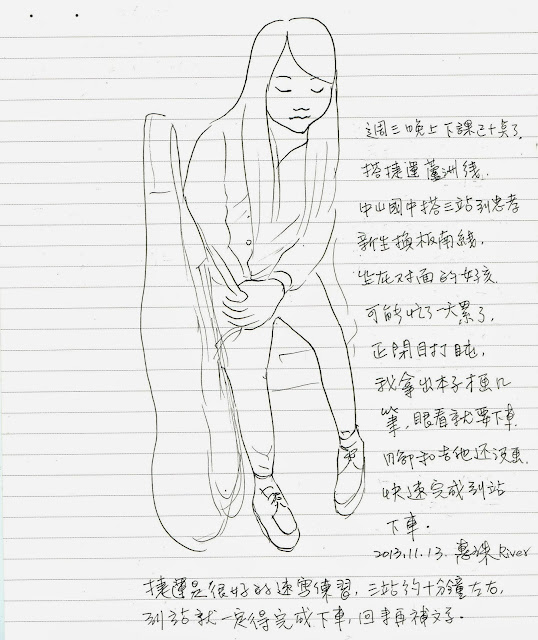 週三晚上下課已十點了.
搭捷運蘆洲線.
中山國中搭三站到忠孝
新生換板南線.
坐在对面的女孩
可能忙了一天累了,
正閉目打盹,
我拿出本子才畫几
筆,眼看就要下車.
脚和吉他还没画.
快速完成到站
下車.
2013.11.13. 惠珠 River
捷運是很好的速寫練習,三站约十分鐘左右,
到站就一定得完成下車,回來再補文字.